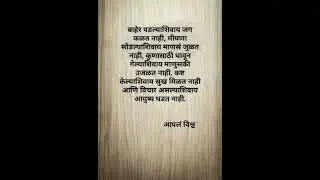 बाहेर पडल्याशिवाय जग
कळत नाही, मीपणा
सोडल्याशिवाय माणसं जुळत
नाही, कुणासाठी धावून
गेल्याशिवाय माणुसकी
उजळत नाही, कष्ट
केल्याशिवाय सुख मिळत नाही
आणि विचार असल्याशिवाय
आयुष्य घडत नाही.
आपलं विश्व